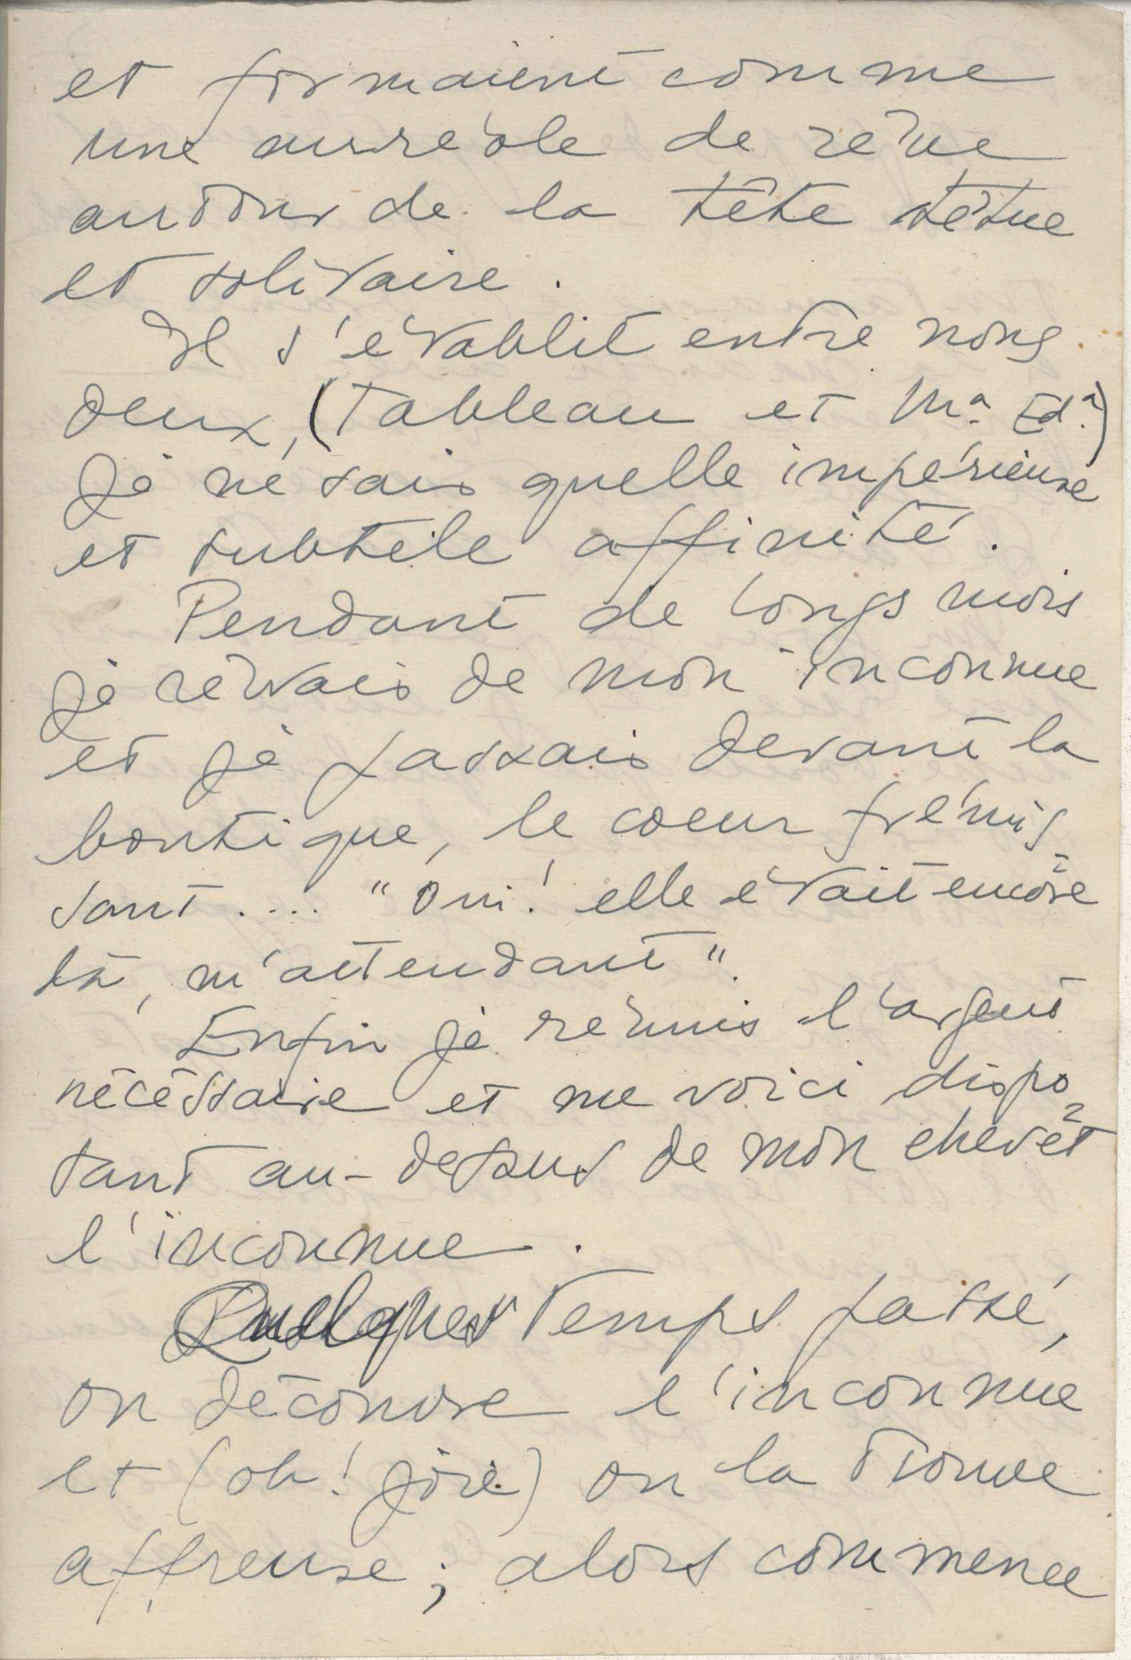 et formaient comme
une auréole de rêve
autour de la tête têtue
et solitaire.
Il s'établit entre nous
deux, (tableau et Mª Edª)
je ne sais quelle impérieuse
et subtile affinité.
Pendant de longs mois
je rêvais de mon inconnue
et je passais devant la
boutique, le coeur frémis-
sant.... "oui! elle était encore
là, m'attendant".
Enfin je réunis l'argent
nécéssaire et me voici dispo-
sant au-dessus de mon chevêt
l'inconnue.
Quelques temps passé,
on découvre l'inconnue
et (oh! joie) on la trouve
affreuse; alors commence